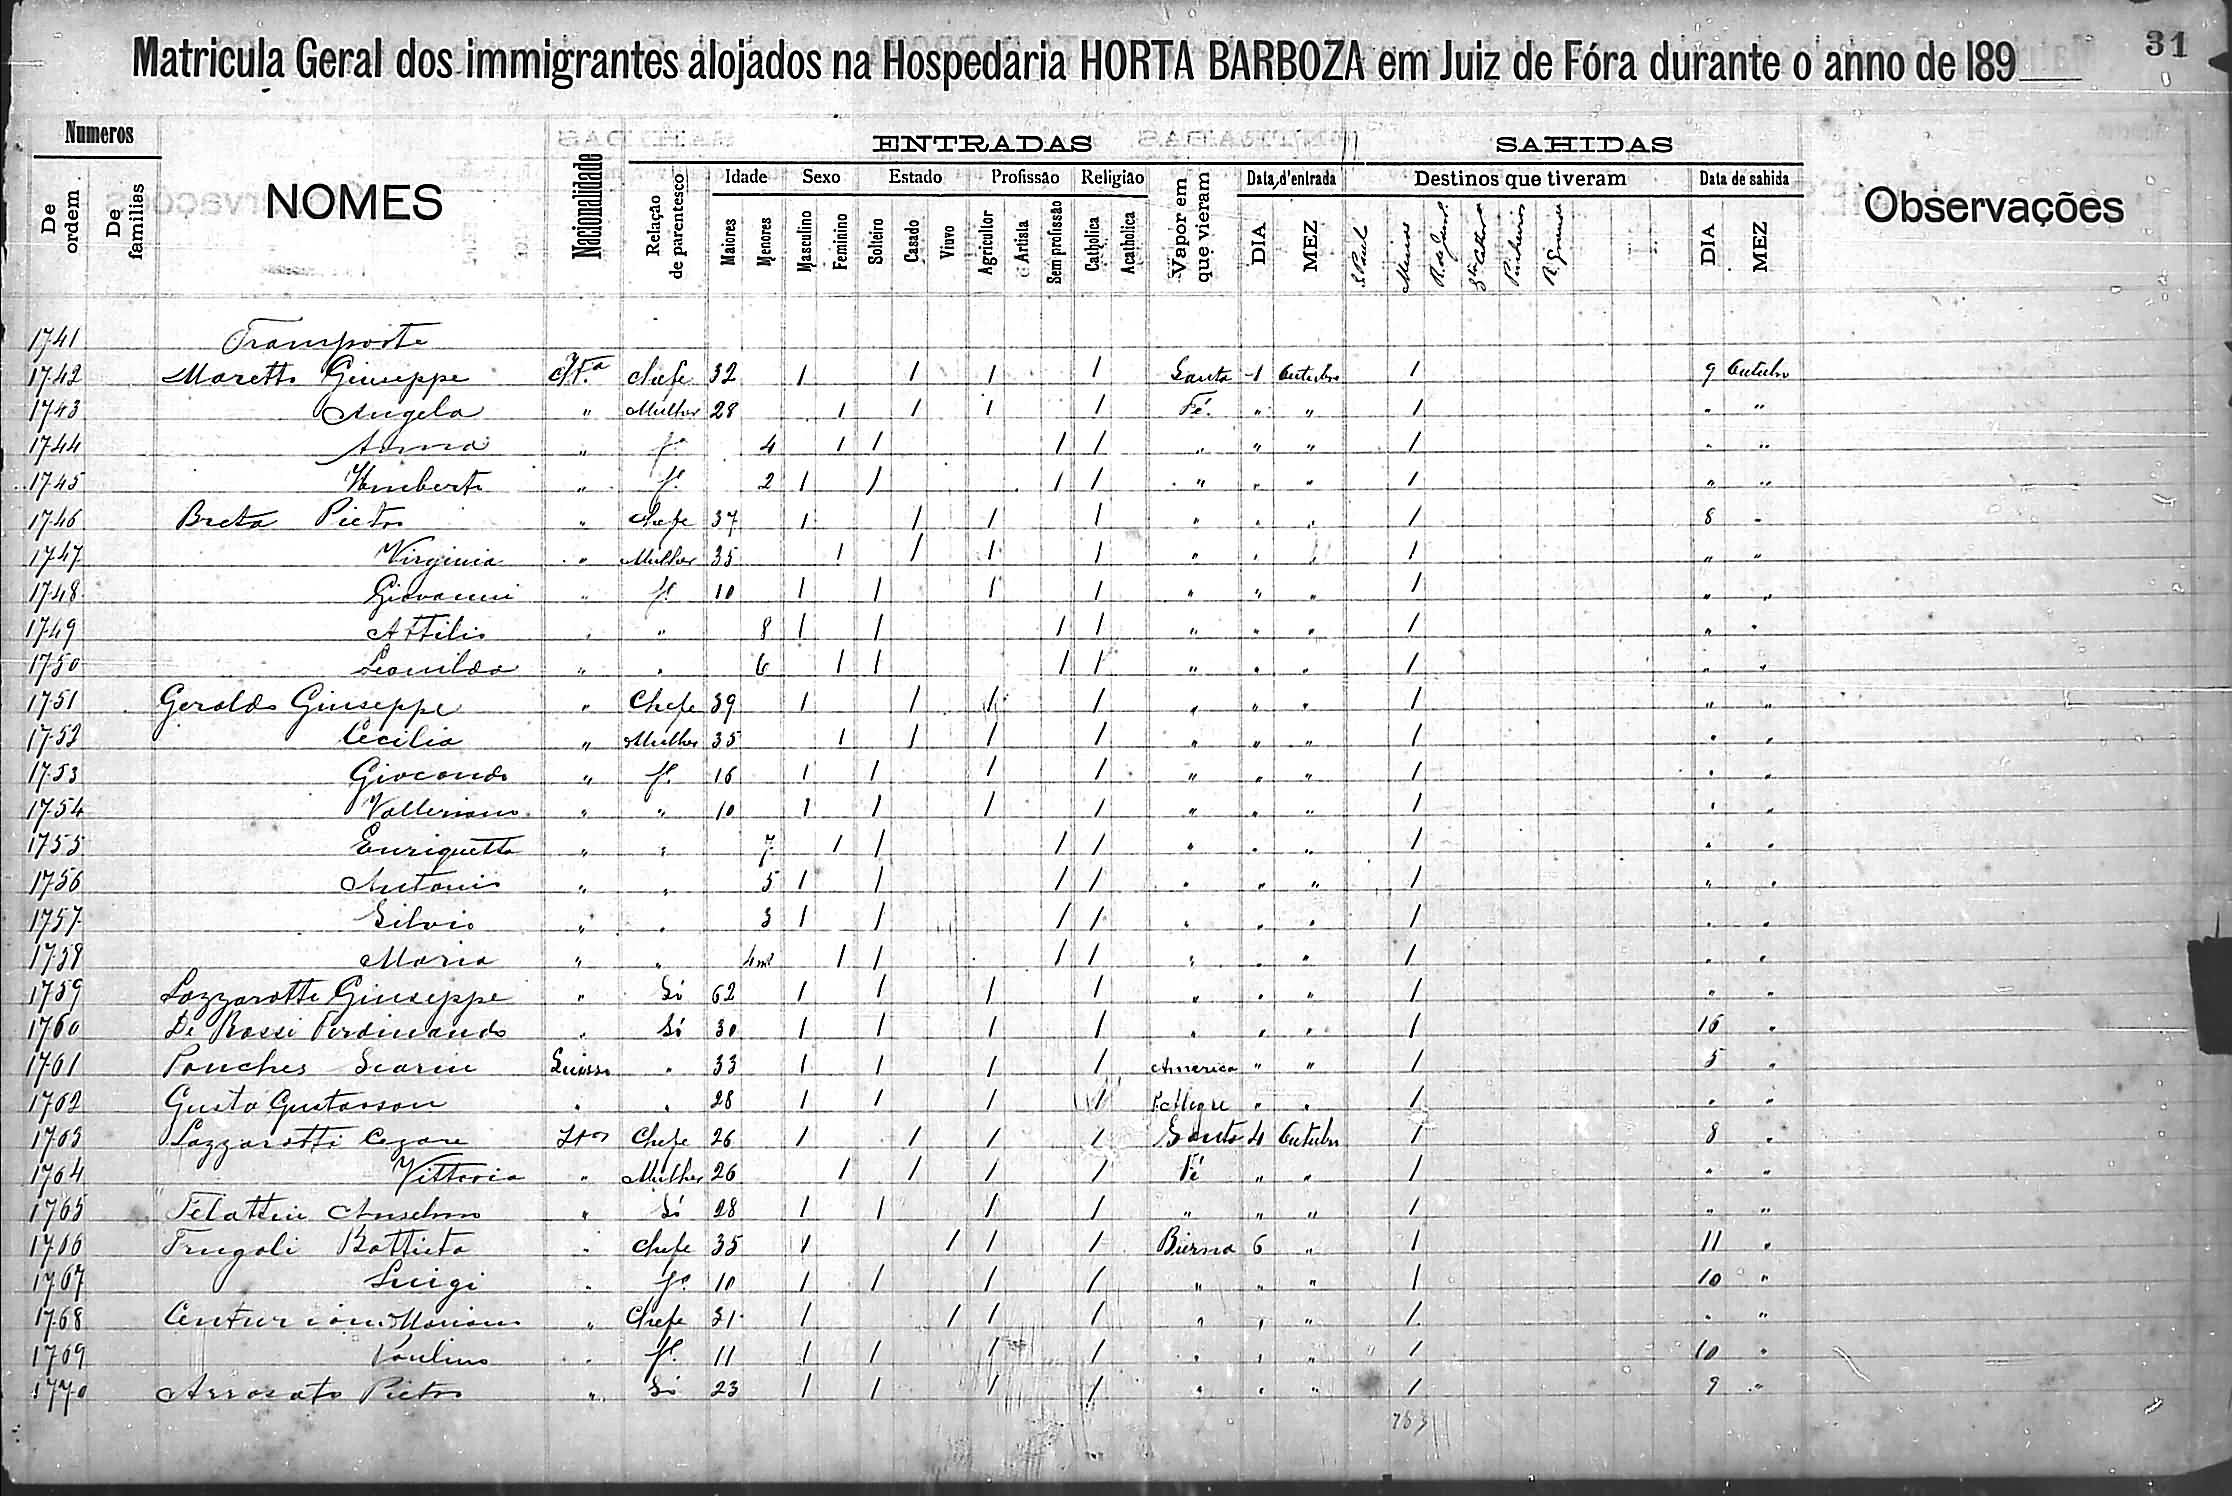 31
Matricula Geral dos immigrantes alojados na Hospedaria HORTA BARBOZA em Juiz de Fóra durante o anno de 189
Numeros ENTRADAS SAHIDAS
De ordem De familias NOMES Nacionalidade Relação de parentesco Idade Sexo Estado Profissão Religião Vapor em que vieram Data d'entrada Destinos que tiveram Data de sahida Observações
Maiores Menores Masculino Feminino Solteiro Casado Viuvo Agricultor Artista Sem profissão Catholica Acatholica DIA MEZ S. Paulo Minas R. de Jan. Sta Cathar. Pinheiros R. Grande DIA MEZ
1741 Transporte
1742 Moretto Giuseppe Ita chefe 32 1 1 1 1 Santa 1 Outubro 1 9 Outubro
1743 Angela " Mulher 28 1 1 1 1 Fé. " " 1 " "
1744 Anna " fa 4 1 1 1 1 " " " 1 " "
1745 Umberto " fo 2 1 1 1 1 " " " 1 " "
1746 Breta Pietro " chefe 37 1 1 1 1 " " " 1 8 "
1747 Virginia " Mulher 35 1 1 1 1 " " " 1 " "
1748 Giovanni " fo 10 1 1 1 1 " " " 1 " "
1749 Attilio " " 8 1 1 1 1 " " " 1 " "
1750 Leonilda " " 6 1 1 1 1 " " " 1 " "
1751 Geraldo Giuseppe " Chefe 39 1 1 1 1 " " " 1 " "
1752 Cecilia " Mulher 35 1 1 1 1 " " " 1 " "
1753 Giocondo " fo 16 1 1 1 1 " " " 1 " "
1754 Valleriano " " 10 1 1 1 1 " " " 1 " "
1755 Enriquetta " " 7 1 1 1 1 " " " 1 " "
1756 Antonio " " 5 1 1 1 1 " " " 1 " "
1757 Silvio " " 3 1 1 1 1 " " " 1 " "
1758 Maria " " 4 ms 1 1 1 1 " " " 1 " "
1759 Lazzarotti Giuseppe " Só 62 1 1 1 1 " " " 1 " "
1760 De Rossi Ferdinando " Só 30 1 1 1 1 " " " 1 16 "
1761 Ponches " 33 1 1 1 1 America " " 1 5 "
1762 Gusta Gustavson " " 28 1 1 1 1 P. Alegre " " 1 " "
1763 Lazzarotti Cezare Itos Chefe 26 1 1 1 1 Santa 4 Outubro 1 8 "
1764 Vittoria " Mulher 26 1 1 1 1 Fé " " 1 " "
1765 Telattin Anselmo " Só 28 1 1 1 1 " " " 1 " "
1766 Frugoli Battista " chefe 35 1 1 1 1 Birma 6 " 1 11 "
1767 Luigi " fo 10 1 1 1 1 " " " 1 10 "
1768 Centurioni Mariano " Chefe 31 1 1 1 1 " " " 1 " "
1769 Paulino " fo 11 1 1 1 1 " " " 1 10 "
1770 Arrosato Pietro " Só 23 1 1 1 1 " " " 1 9 "
783